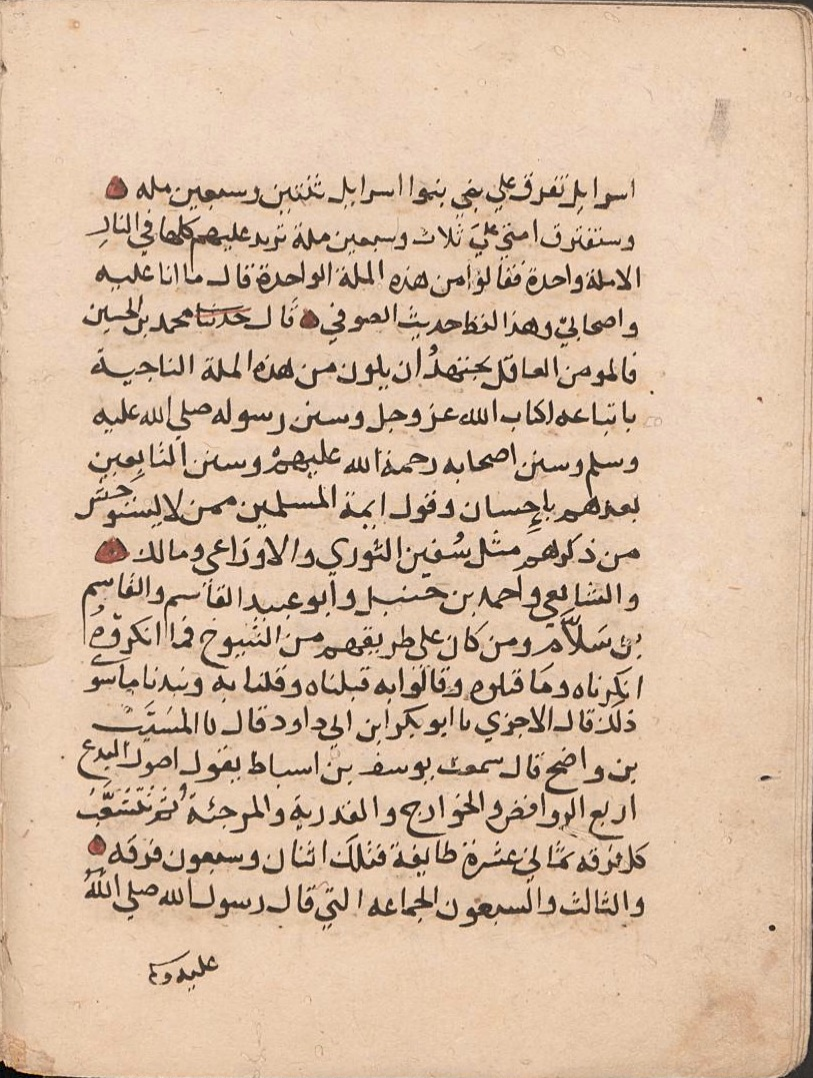 اسرايل تفرق علي بني بنوا اسرايل ثنتين وسبعين مله
وستفترق امتي علي ثلاث وسبعين ملة تزيد عليهم كلها في النار
الا ملة واحدة فقالوا من هذه الملة الواحدة قال ما انا عليه
واصحابي وهذا لفظ حديث الصوفي قال حدثنا محمد بن الحسين
فالمومن العاقل يجتهد ان يكون من هذه الملة الناجية
باتباعه لكتاب الله عز وجل وسنن رسوله صلي الله عليه
وسلم وسنن اصحابه رحمة الله عليهم وسنن التابعين
بعدهم باحسان وقول ايمة المسلمين ممن لا يستوحش
من ذكرهم مثل سُفين الثوري والاوزاعي ومالك
والشافعي واحمد بن حنبل وابو عبيد القاسم والقاسم
بن سَلاَّم ومن كان علي طريقهم من الشيوخ فما انكروه
انكرناه وما قبلوه وقالوا به قبلناه وقلنا به ونبذنا ما سوي
ذلك قال الاجري نا ابو بكر ابن ابي داود قال نا المسَيَّب
بن واضح قال سمعت يوسف بن اسباط يقول اصول البدع
اربع الروافض والخوارج والقدرية والمرجئة ثم تتشعَّب
كل فرقه ثماني عشرة طايفة فتلك اثنان وسبعون فرقه
والثالث والسبعون الجماعه التي قال رسول الله صلي الله
عليه و